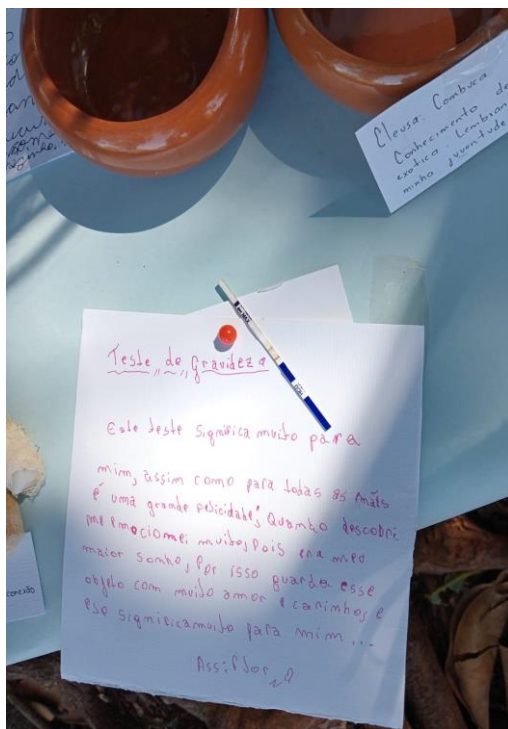 Eleusa: Combuca
Conhecimento de
exotica. Lembran
minha juventude
MAX
Teste de Gravideza
Este teste significa muito para
mim, assim como para todas as mães
é uma grande felicidade, Quando descobri
me emocionei muito, Pois era meu
maior sonho, Por isso guardo esse
objeto com muito amor e carinho, e
ese significa muito para mim...
Ass: Flor
conexão